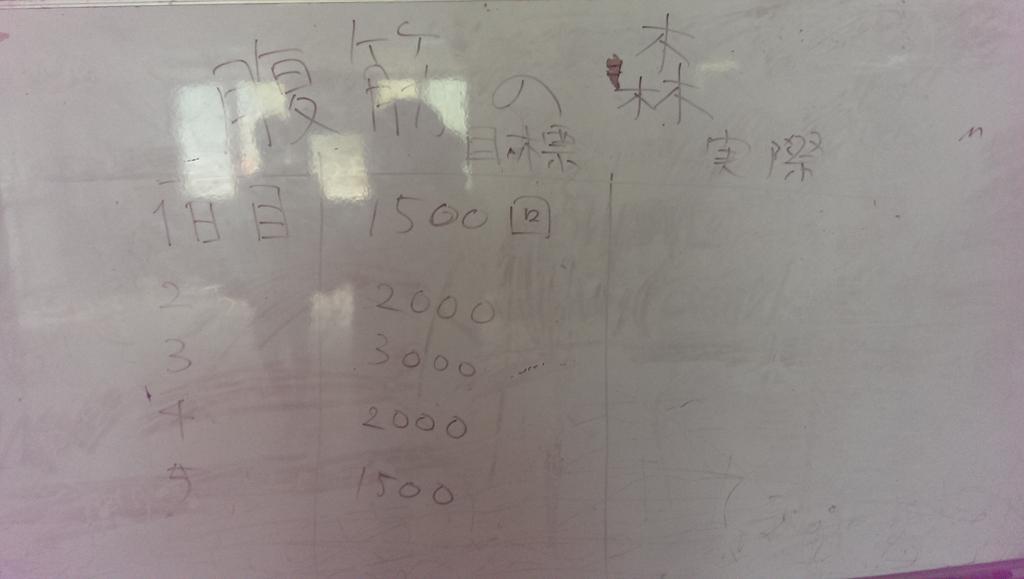 腹筋の森
目標 実際
1日目 1500回
2 2000
3 3000
4 2000
5 1500